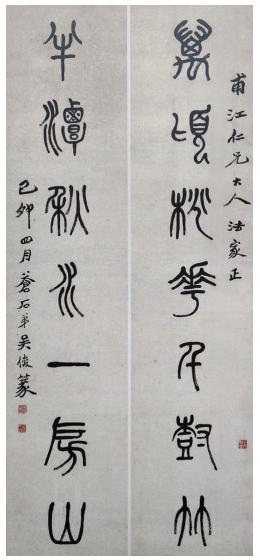 甫江仁兄大人法家正
萬頃桃華千樹竹
半潭秋水一房山
己卯四月蒼石弟吳俊篆